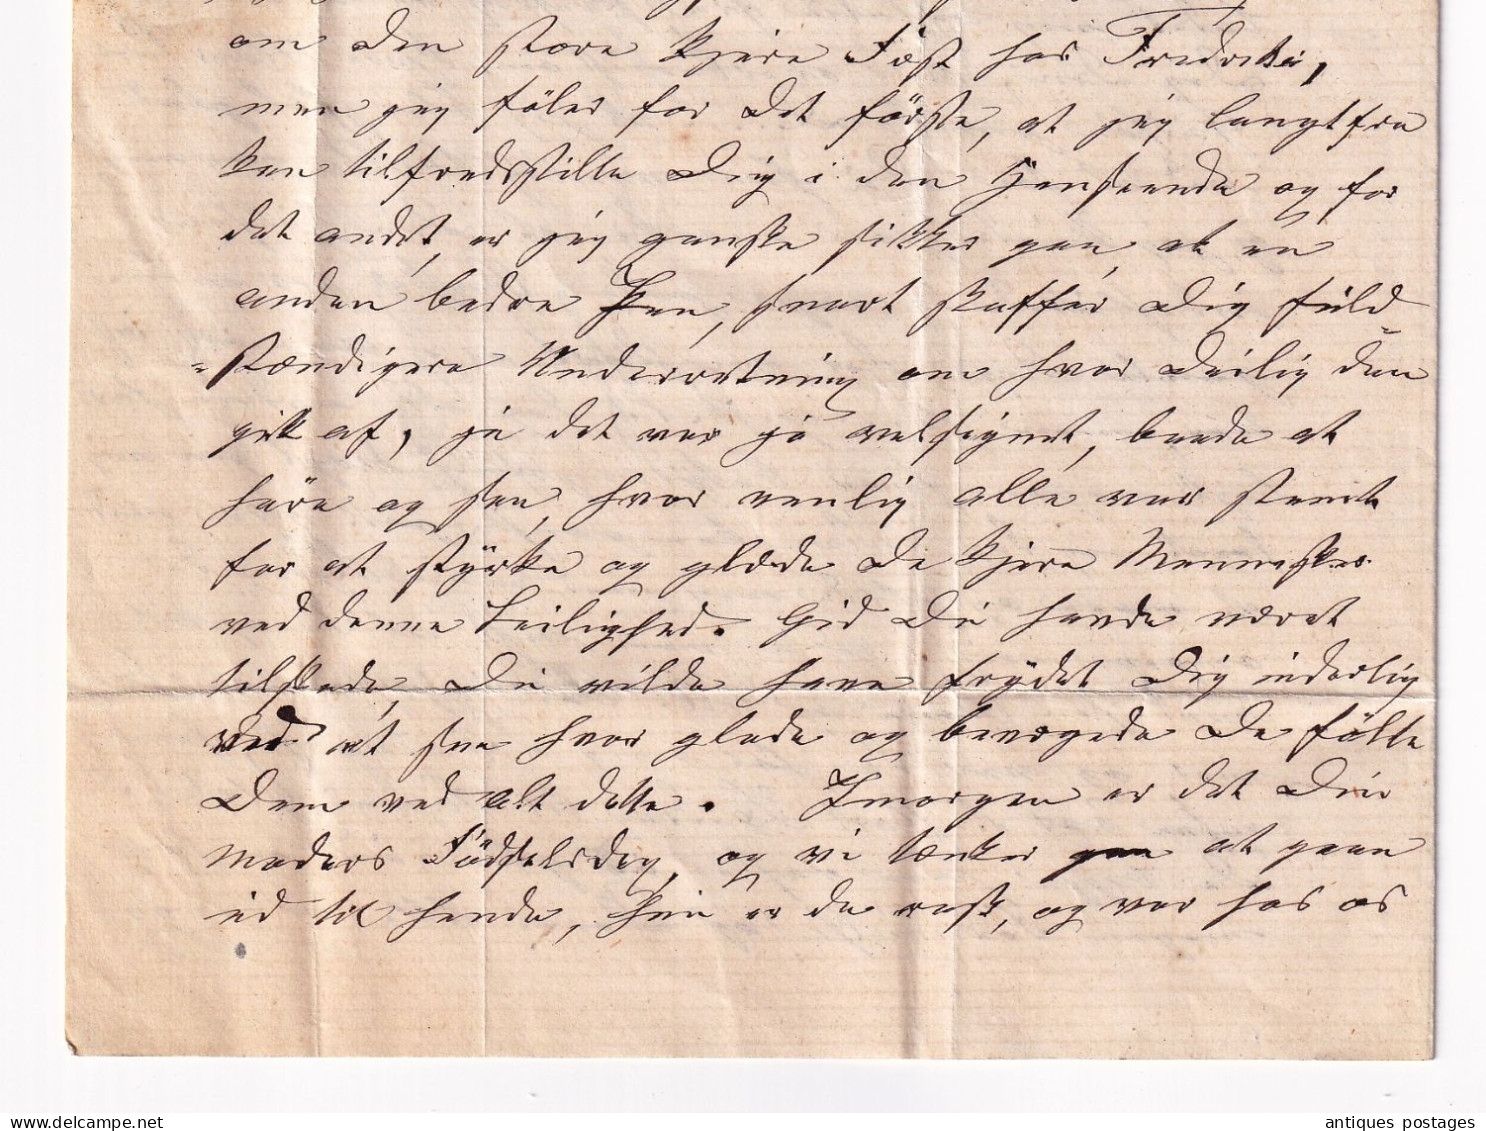 om den store kjere Fæst hos Fredriks,
men jeg föler for det förste, at jeg langtfra
kan tilfredsstille Dig i den Henseende og for
det andet, er jeg ganske sikker paa, at en
anden bedre Pen, snart skaffer Dig fuld-
=stændigere Underretning om hvor deilig den
gik af, ja det var jo velsignet, baade at
høre og see, hvor venlig alle var stemt
for at styrke og glæde de kjere Mennesker
ved denne Leilighed. Gid Du havde været
tilstede, Du vilde have frydet Dig inderlig
ved at see hvor glade og bevægede de fölte
dem ved alt dette. Imorgen er det Din
Moders Födselsdag, og vi tænker at gaae
ud til hende, hun er da rask, og var hos os
antiques postages
delcampe.net